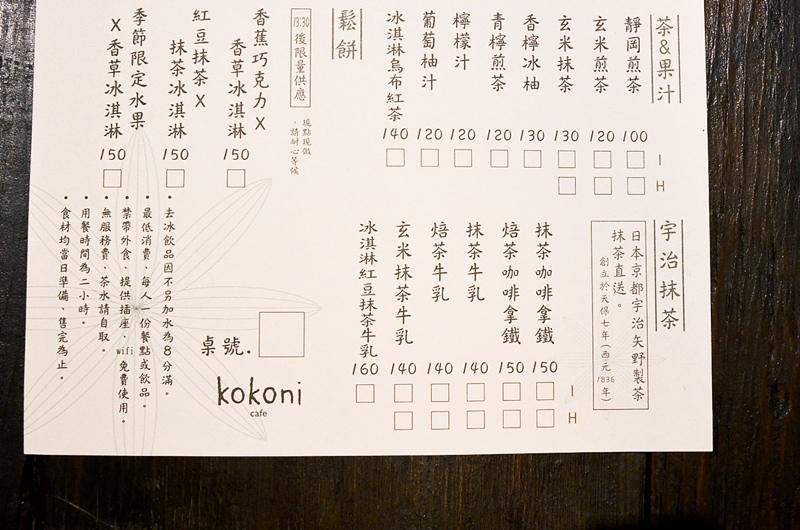 茶&果汁
I
H
靜岡煎茶 100
玄米煎茶 120
玄米抹茶 130
香檸冰柚 130
青檸煎茶 120
檸檬汁 120
葡萄柚汁 120
冰淇淋烏布紅茶 140
鬆餅
13:30後限量供應
現點現做
，請耐心等候
香蕉巧克力X
香草冰淇淋 150
紅豆抹茶X
抹茶冰淇淋 150
季節限定水果
X香草冰淇淋 150
宇治抹茶
日本京都宇治矢野製茶
抹茶直送。
創立於天保七年(西元1836年)
I
H
抹茶咖啡拿鐵 150
焙茶咖啡拿鐵 150
抹茶牛乳 140
焙茶牛乳 140
玄米抹茶牛乳 140
冰淇淋紅豆抹茶牛乳 160
桌號.
kokoni
cafe
•去冰飲品因不另加水為8分滿。
•最低消費、每人一份餐點或飲品。
•禁帶外食、提供插座、wifi免費使用。
•無服務費、茶水請自取。
•用餐時間為二小時。
•食材均當日準備、售完為止。